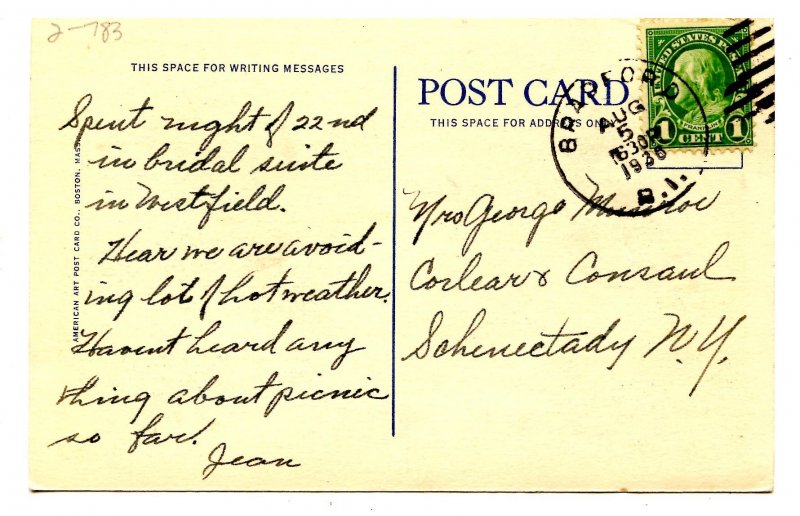 2-783
THIS SPACE FOR WRITING MESSAGES
Spent night of 22nd
in bridal suite
in Westfield.
Hear we are avoid-
ing lot of hot weather.
Havent heard any
thing about picnic
so far.
Jean
AMERICAN ART POST CARD CO., BOSTON, MASS.
POST CARD
THIS SPACE FOR ADDRESS ONLY
BRADFORD
AUG
5
630P
1936
R.I.
UNITED STATES POSTAGE
FRANKLIN
1 CENT 1
Mrs George Munroe
Corlear & Consaul
Schenectady N.Y.